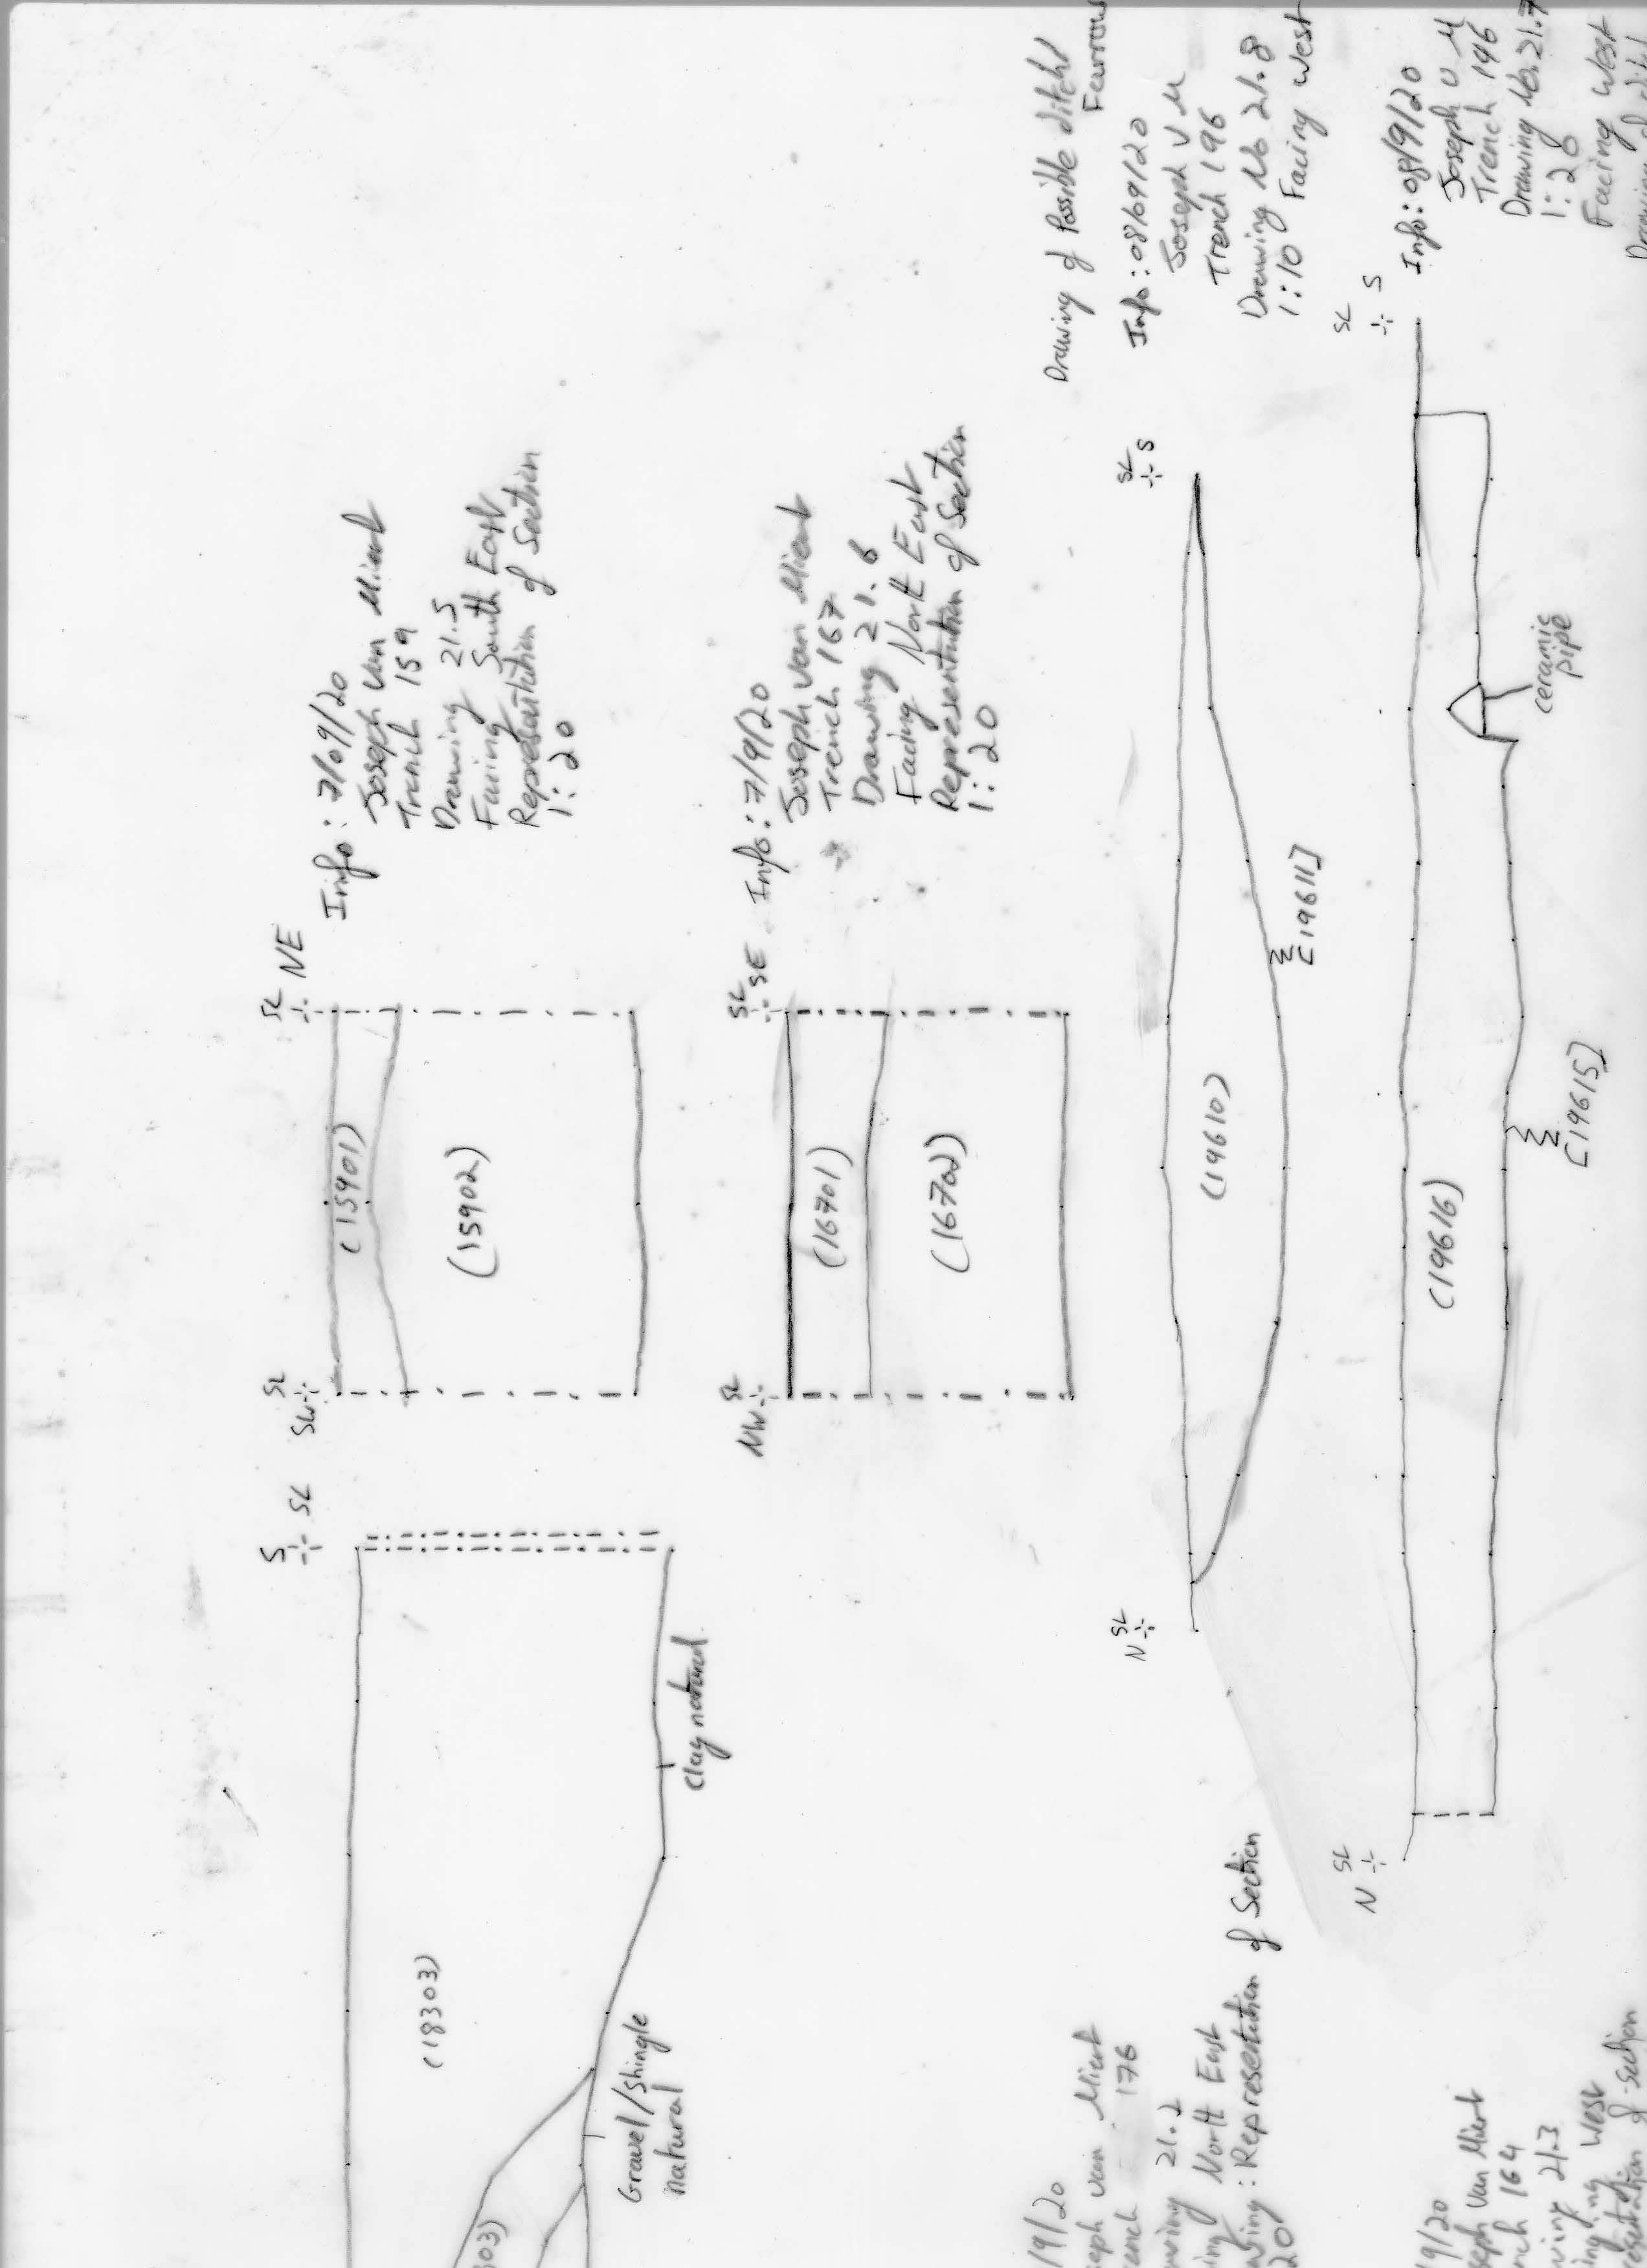 S
SL
Clay natural
(18303)
Gravel/Shingle
natural
303)
SL
SW
SL
NE
(15901)
(15902)
Info: 7/09/20
Joseph Van Miert
Trench 159
Drawing 21.5
Facing South East
Representation of Section
1:20
NW
SL
SL
SE
(16701)
(16702)
Info: 7/9/20
Joseph Van Miert
Trench 167
Drawing 21.6
Facing North East
Representation of Section
1:20
Drawing of Possible ditch/
Furrow
Info: 08/09/20
Joseph V M
Trench 196
Drawing No 21.8
1:10 Facing West
N
SL
SL
S
(19610)
[19611]
Info: 08/9/20
Joseph V M
Trench 196
Drawing No.21.7
1:20
Facing West
Drawing of ditch
N
SL
SL
S
(19616)
[19615]
ceramic
pipe
19/20
seph van Miert
rench 176
awing 21.2
ing North East
wing: Representation of Section
20
9/20
seph Van Miert
nch 164
wing 21.3
ing West
resentation of Section